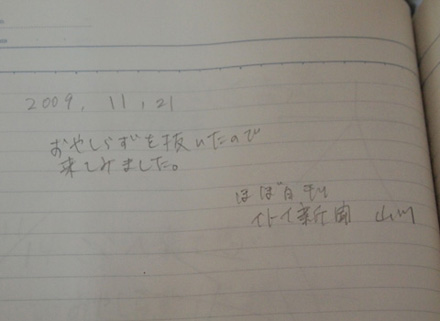 2009, 11, 21
おやしらずを抜いたので
来てみました。
ほぼ日刊
イトイ新聞 山川